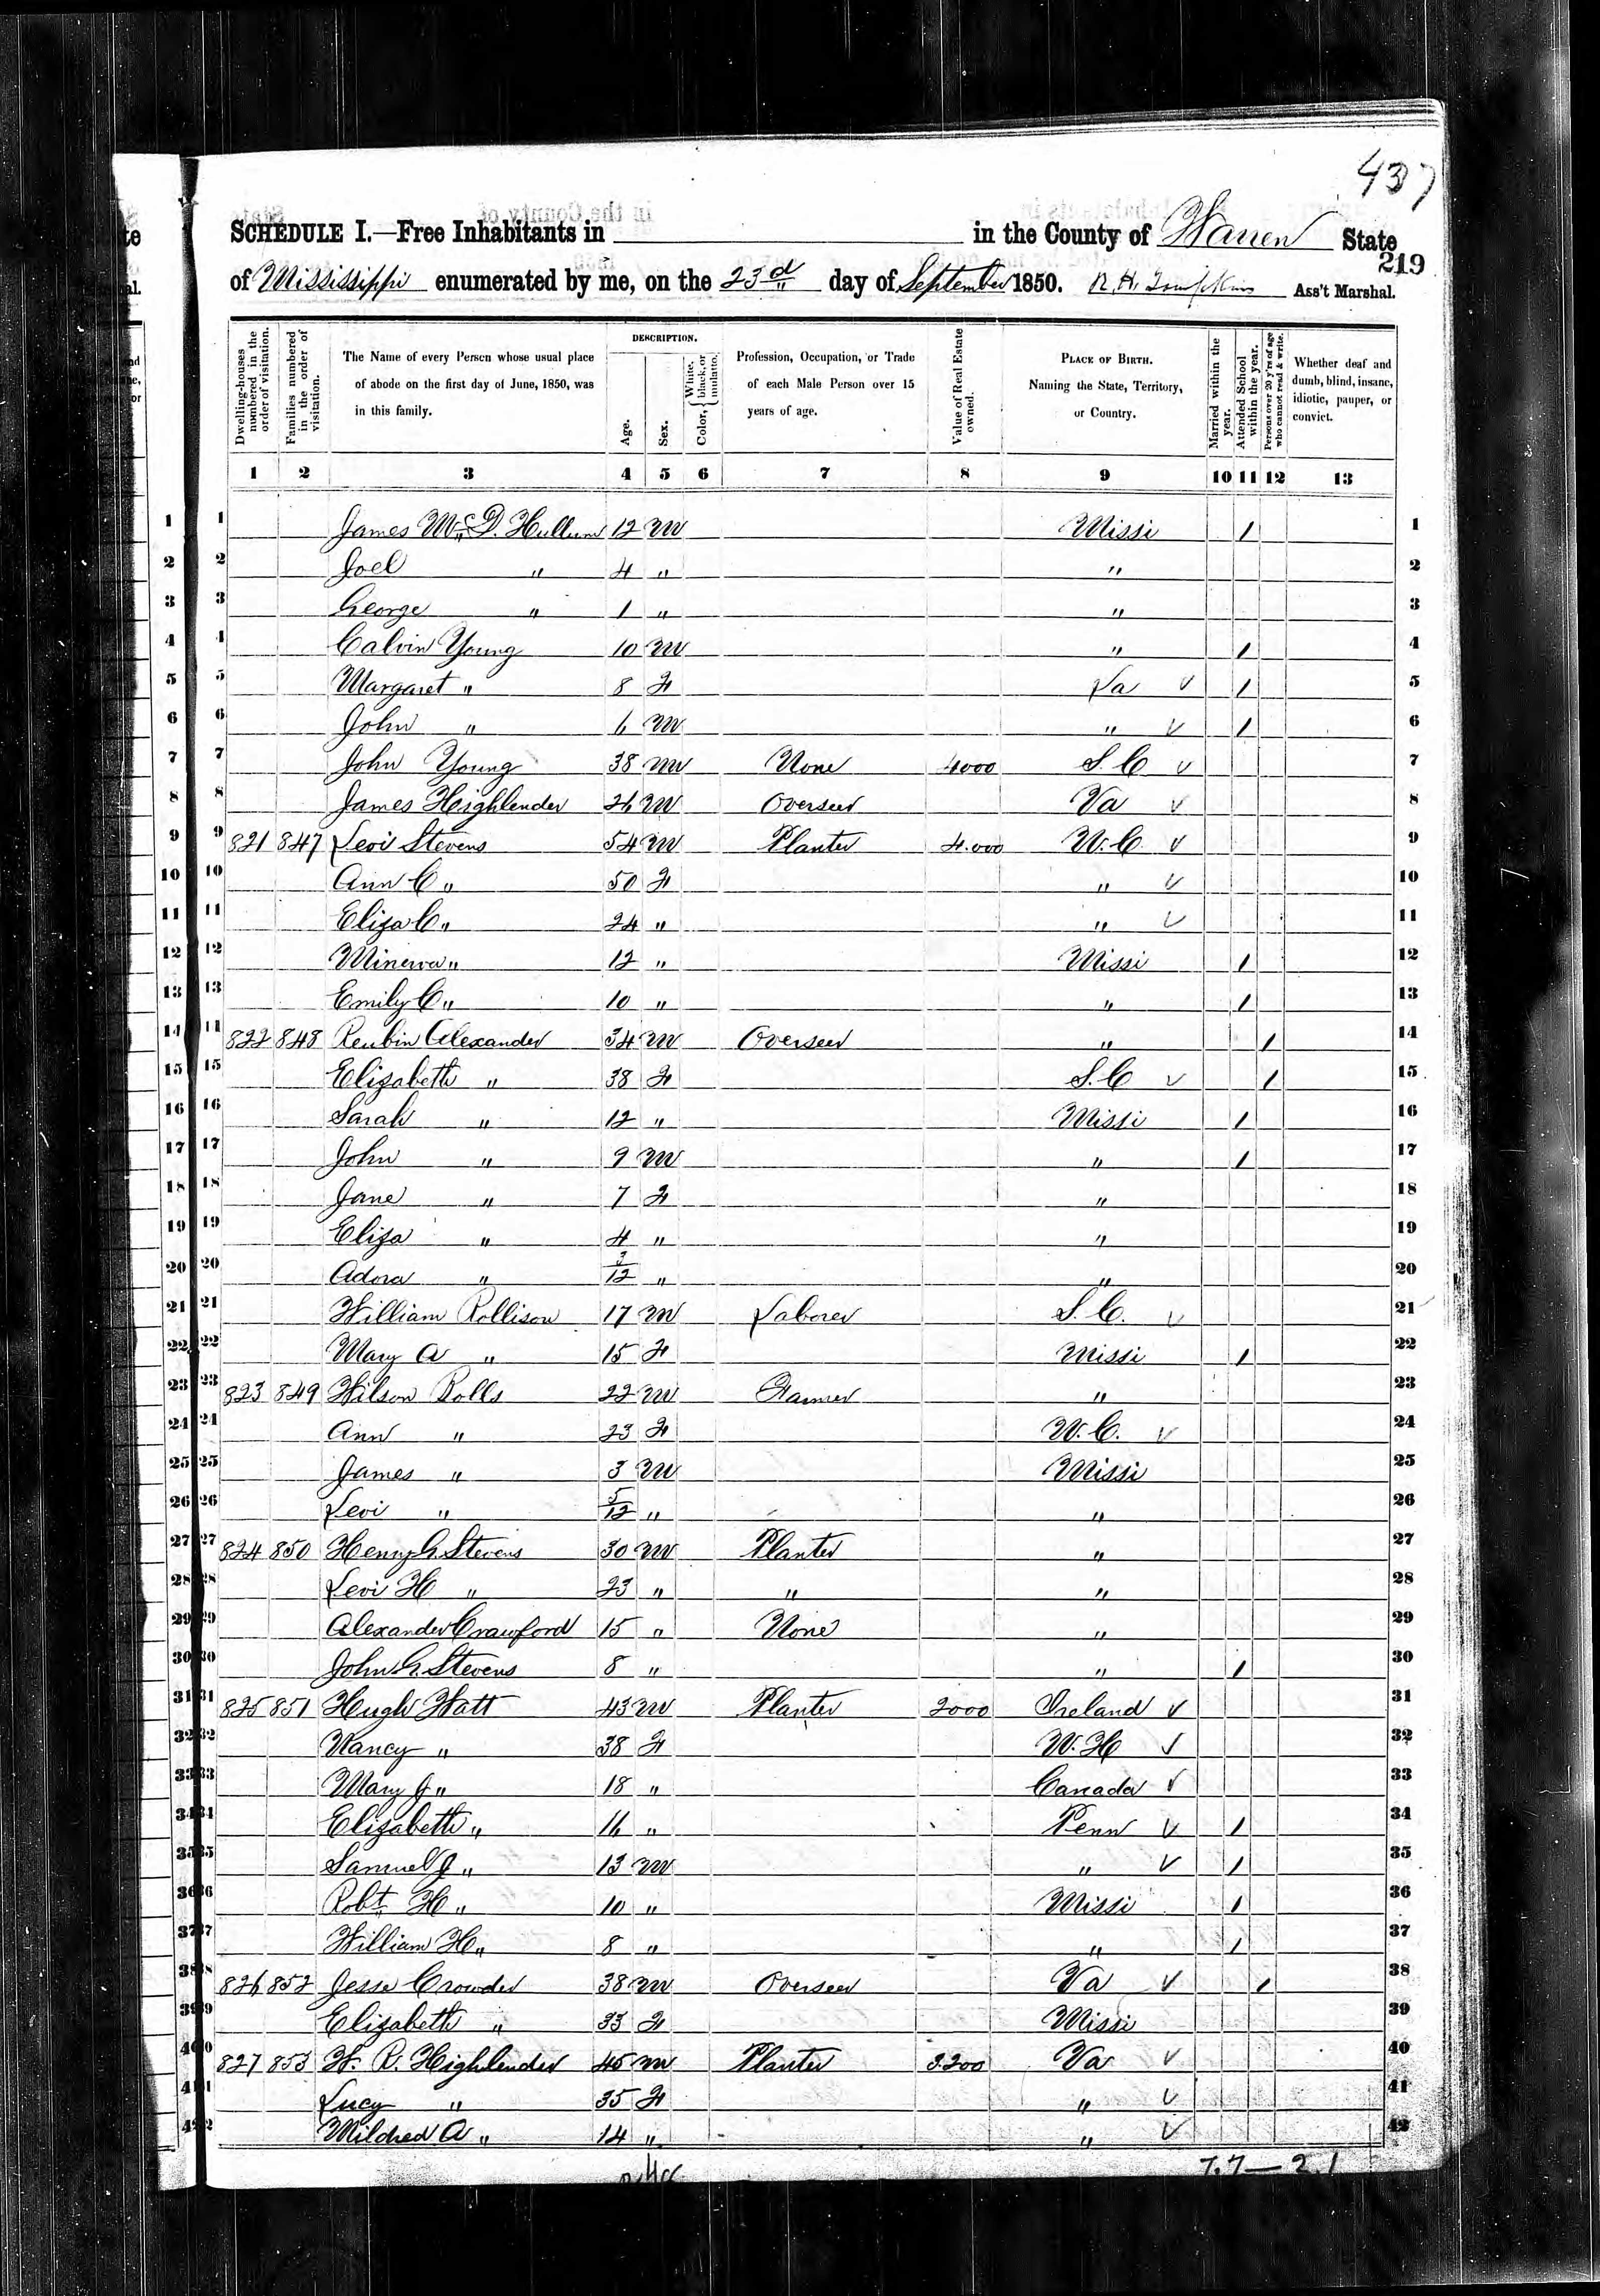 437
SCHEDULE I.—Free Inhabitants in in the County of Warren State
219
of Mississippi enumerated by me, on the 23d day of September 1850. R. H. Tompkins Ass't Marshal.
Dwelling-houses numbered in the order of visitation.
Families numbered in the order of visitation.
The Name of every Person whose usual place of abode on the first day of June, 1850, was in this family.
DESCRIPTION.
Age.
Sex.
Color, { White, black, or mulatto.
Profession, Occupation, or Trade of each Male Person over 15 years of age.
Value of Real Estate owned.
PLACE OF BIRTH. Naming the State, Territory, or Country.
Married within the year.
Attended School within the year.
Persons over 20 y'rs of age who cannot read & write.
Whether deaf and dumb, blind, insane, idiotic, pauper, or convict.
1 2 3 4 5 6 7 8 9 10 11 12 13
1 James McD. Hullum 12 M Missi / 1
2 Joel " 4 " " 2
3 George " 1 " " 3
4 Calvin Young 10 M " / 4
5 Margaret " 8 F Va ✓ / 5
6 John " 6 M " ✓ / 6
7 John Young 38 M None 4000 S. C ✓ 7
8 James Highlender 26 M Overseer Va ✓ 8
9 821 847 Levi Stevens 54 M Planter 4.000 N. C ✓ 9
10 Ann C " 50 F " ✓ 10
11 Eliza C " 24 " " ✓ 11
12 Minerva " 12 " Missi / 12
13 Emily C " 10 " " / 13
14 822 848 Reubin Alexander 34 M Overseer " / 14
15 Elizabeth " 38 F S. C ✓ / 15
16 Sarah " 12 " Missi / 16
17 John " 9 M " / 17
18 Jane " 7 F " 18
19 Eliza " 4 " " 19
20 Adora " 3/12 " " 20
21 William Rollison 17 M Laborer S. C. ✓ 21
22 Mary A " 15 F Missi / 22
23 823 849 Wilson Rolls 22 M Farmer " 23
24 Ann " 23 F N. C. ✓ 24
25 James " 3 M Missi 25
26 Levi " 5/12 " " 26
27 824 850 Henry G. Stevens 30 M Planter " 27
28 Levi H " 23 " " " 28
29 Alexander Crawford 15 " None " 29
30 John G Stevens 8 " " / 30
31 825 851 Hugh Watt 43 M Planter 2000 Ireland ✓ 31
32 Nancy " 38 F N. H ✓ 32
33 Mary J " 18 " Canada ✓ 33
34 Elizabeth " 16 " Penn ✓ / 34
35 Samuel J " 13 M " ✓ / 35
36 Robt H " 10 " Missi / 36
37 William H " 8 " " / 37
38 826 852 Jesse Crowder 38 M Overseer Va ✓ / 38
39 Elizabeth " 33 F Missi 39
40 827 853 W. R. Highlender 45 M Planter 3.200 Va ✓ 40
41 Lucy " 35 F " ✓ 41
42 Mildred A " 14 " " ✓ 42